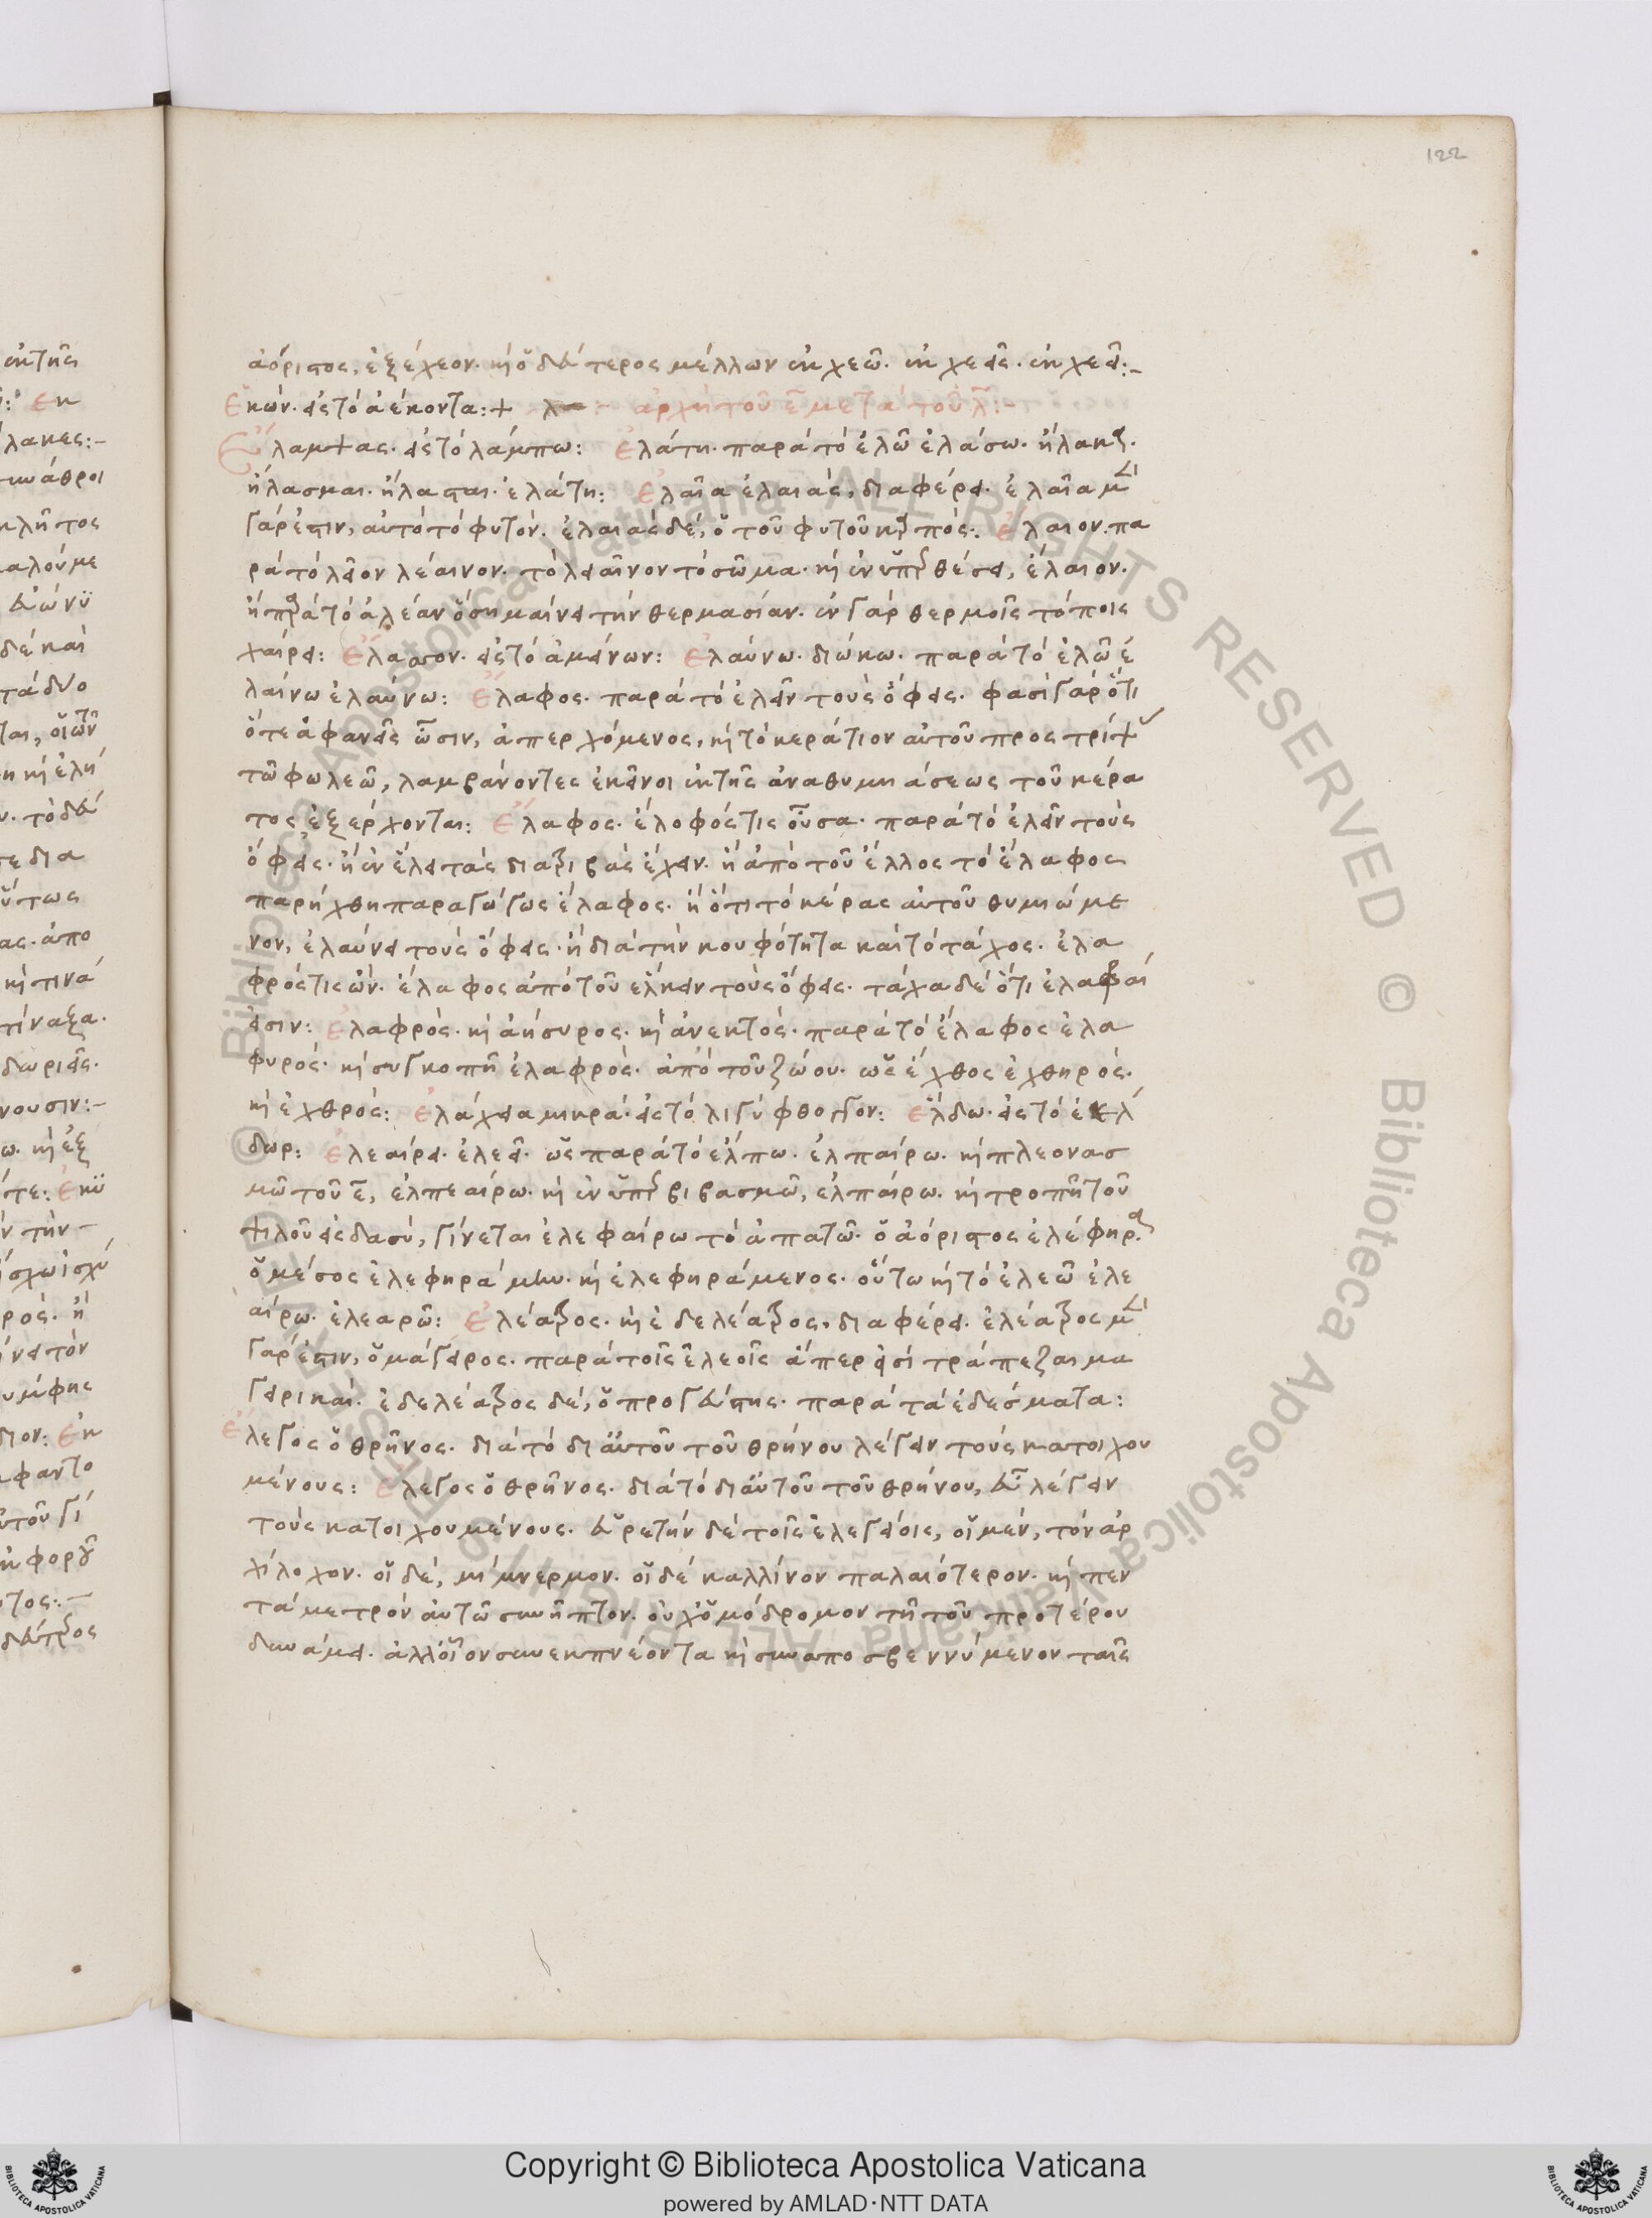 122
ἀόριστος, ἐξέχεον. καὶ ὁ δεύτερος μέλλων ἐκχεῶ. ἐκχεεῖς. ἐκχεεῖ:-
Ἑκών. εἰς τὸ ἀέκοντα:+ ἀρχὴ τοῦ ε μετὰ τοῦ λ:-
Ἔλαμψας. εἰς τὸ λάμπω: Ἐλάτη. παρὰ τὸ ἐλῶ ἐλάσω. ἤλακα.
ἤλασμαι. ἤλασται. ἐλάτη: Ἐλαῖα ἐλαιὰς, διαφέρει. ἐλαῖα μὲν
γάρ ἐστιν, αὐτὸ τὸ φυτόν. ἐλαιὰς δέ, ὁ τοῦ φυτοῦ καρπός: Ἔλαιον. πα
ρὰ τὸ λεῖον λέαινον. τὸ λεαῖνον τὸ σῶμα. καὶ ἐν ὑπερθέσει, ἔλαιον.
ἢ παρὰ τὸ ἀλέαν ὃ σημαίνει τὴν θερμασίαν. ἐν γὰρ θερμοῖς τόποις
χαίρει: Ἔλασσον. εἰς τὸ ἀμείνων: Ἐλαύνω. διώκω. παρὰ τὸ ἐλῶ ἐ
λαίνω ἐλαύνω: Ἔλαφος. παρὰ τὸ ἐλεῖν τοὺς ὄφεις. φασὶ γὰρ ὅτι
ὅτε ἀφανεῖς ὦσιν, ἀπερχόμενος, καὶ τὸ κεράτιον αὐτοῦ προστρίψει
τῶ φωλεῶ, λαμβάνοντες ἐκεῖνοι ἐκ τῆς ἀναθυμιάσεως τοῦ κέρα
τος ἐξέρχονται: Ἔλαφος. ἐλοφός τις οὖσα. παρὰ τὸ ἐλεῖν τοὺς
ὄφεις. ἢ ἐν ἕλει τὰς διατριβὰς ἔχειν. ἢ ἀπὸ τοῦ ἕλλος τὸ ἔλαφος
παρήχθη παραγώγως ἔλαφος. ἢ ὅτι τὸ κέρας αὐτοῦ θυμιώμε
νον, ἐλαύνει τοὺς ὄφεις. ἢ διὰ τὴν κουφότητα καὶ τὸ τάχος. ἐλα
φρός τις ὤν. ἔλαφος ἀπὸ τοῦ ἕλκειν τοὺς ὄφεις. τάχα δὲ ὅτι ἐλαφραί
εἰσιν: Ἐλαφρός. καὶ ἀήσυρος. καὶ ἀνεκτός. παρὰ τὸ ἔλαφος ἐλα
φυρός. καὶ συγκοπῆ ἐλαφρός. ἀπὸ τοῦ ζώου. ὡς ἔχθος ἐχθηρός.
καὶ ἐχθρός: Ἐλάχεια μικρά. εἰς τὸ λιγύφθογγον: Ἔλδω. εἰς τὸ ἐέλ
δωρ: Ἐλεαίρει. ἐλεεῖ. ὡς παρὰ τὸ ἔλπω. ἐλπαίρω. καὶ πλεονασ
μῶ τοῦ ε, ἐλπεαίρω. καὶ ἐν ὑπερβιβασμῶ, ἐλπαίρω. καὶ τροπῆ τοῦ
ψιλοῦ εἰς δασύ, γίνεται ἐλεφαίρω τὸ ἀπατῶ. ὁ ἀόριστος ἐλέφηρα.
ὁ μέσος ἐλεφηράμην. καὶ ἐλεφηράμενος. οὕτω καὶ τὸ ἐλεῶ ἐλε
αίρω. ἐλεαρῶ: Ἐλέατρος. καὶ ἐδελέατρος, διαφέρει. ἐλέατρος μὲν
γάρ ἐστιν, ὁ μάγειρος. παρὰ τοῖς ἐλεοῖς ἅπερ εἰσὶ τράπεζαι μα
γειρικαί. ἐδελέατρος δέ, ὁ προγεύστης. παρὰ τὰ ἐδέσματα:
Ἔλεγος ὁ θρῆνος. διὰ τὸ δι' αὐτοῦ τοῦ θρήνου λέγειν τοὺς κατοιχου
μένους: Ἔλεγος ὁ θρῆνος. διὰ τὸ δι' αὐτοῦ τοῦ θρήνου, εὖ λέγειν
τοὺς κατοιχουμένους. εὑρετὴν δὲ τοῖς ἐλεγείοις, οἱ μέν, τὸν ἀρ
χίλοχον. οἱ δέ, μίμνερμον. οἱ δὲ καλλίνον παλαιότερον. καὶ πεν
τάμετρον αὐτῶ συνῆπτον. οὐχ ὁμόδρομον τῆ τοῦ προτέρου
δυνάμει. ἀλλ' οἷον συνεκπνέοντα καὶ συναποσβεννύμενον ταῖς
Copyright © Biblioteca Apostolica Vaticana
powered by AMLAD·NTT DATA